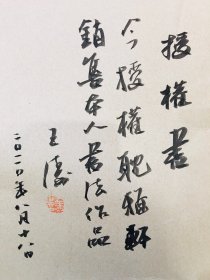 授權書
今授權耽雅軒
銷售本人書法作品
王濤
二〇一〇年八月十八日